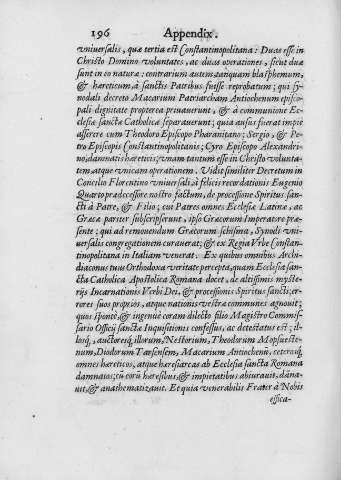 196 Appendix.
vniuersalis, quæ tertia est Constantinopolitana: Duas esse in
Christo Domino voluntates, ac duas operationes, sicut duæ
sunt in eo naturæ: contrarium autem, tanquam blasphemum,
& hæreticum, à sanctis Patribus fuisse reprobatum; qui sy-
nodali decreto Macarium Patriarcham Antiochenum episco-
pali dignitate propterea priuauerunt, & à communione Ec-
clesiæ sanctæ Catholicæ separauerunt; quia ausus fuerat impiè
asserere cum Theodoro Episcopo Pharanitano; Sergio, & Pe-
tro Episcopis Constantinopolitanis; Cyro Episcopo Alexandri-
no, damnatis hæreticis, vnam tantum esse in Christo volunta-
tem, atque vnicam operationem. Vidit similiter Decretum in
Concilio Florentino vniuersali, à felicis recordationis Eugenio
Quarto prædecessore nostro factum, de processione Spiritus san-
cti à Patre, & Filio; cui Patres omnes Ecclesiæ Latinæ, ac
Græcæ pariter subscripserunt, ipso Græcorum Imperatore præ-
sente; qui ad remouendum Græcorum schisma, Synodi vni-
uersalis congregationem curauerat; & ex Regia Vrbe Constan-
tinopolitana in Italiam venerat. Ex quibus omnibus Archi-
diaconus tuus Orthodoxa veritate percepta, quam Ecclesia san-
cta Catholica Apostolica Romana docet, de altissimis myste-
rijs Incarnationis Verbi Dei, & processionis Spiritus sancti; er-
rores suos proprios, atque nationis vestræ communes agnouit;
quos spontè, & ingenuè coram dilecto filio Magistro Commis-
sario Officij sanctæ Inquisitionis confessus, ac detestatus est; il-
losq, auctoresq; illorum, Nestorium, Theodorum Mopsueste-
num, Diodorum Tarsensem, Macarium Antiochenũ, ceterosq;
omnes hæreticos, atque hæresiarcas ab Ecclesia sancta Romana
damnatos; cũ eorũ hæresibus, & impietatibus abiurauit, dãna-
uit, & anathematizauit. Et quia venerabilis Frater à Nobis
effica-